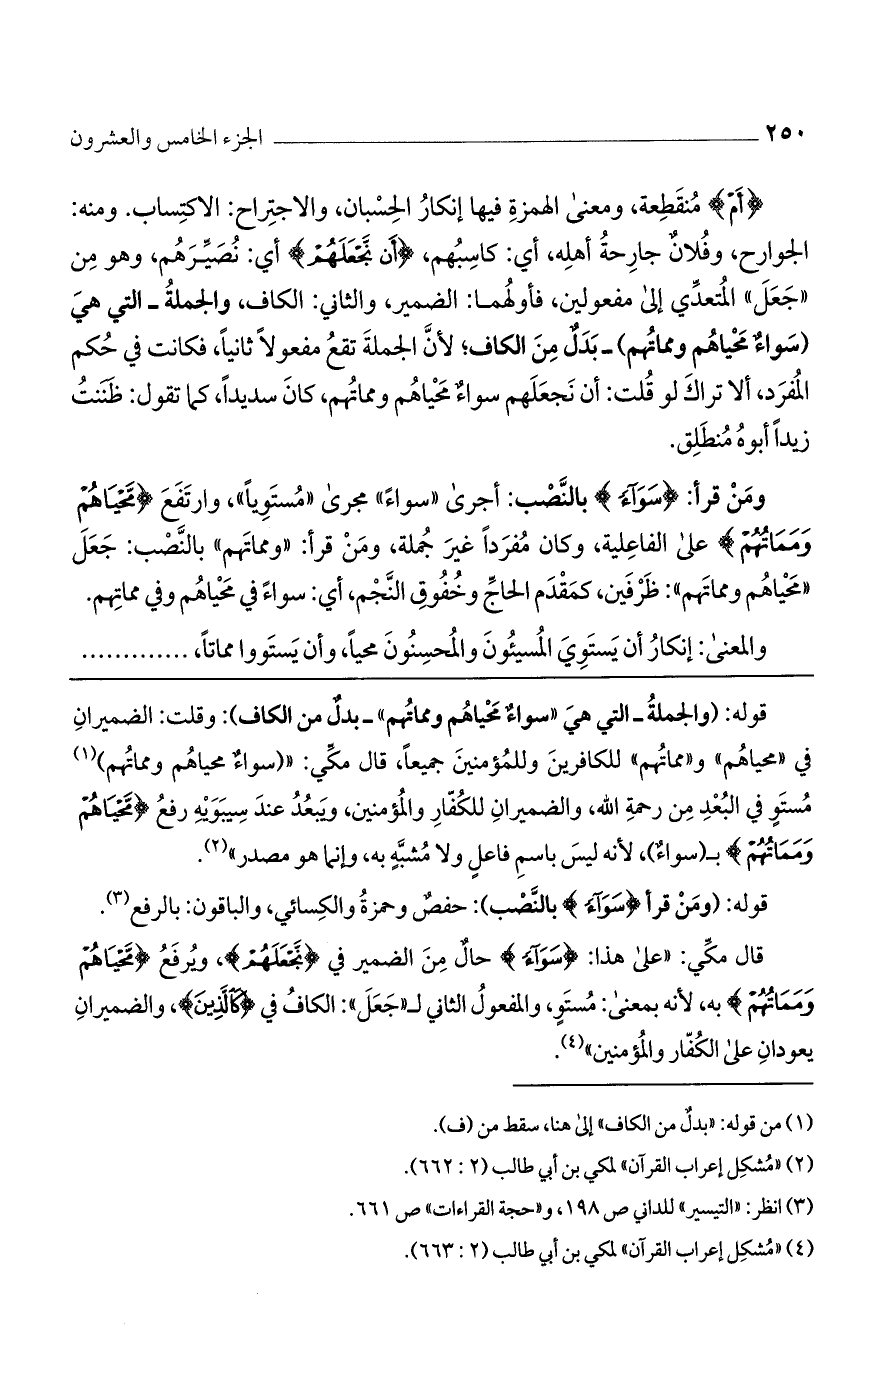 ٢٥٠ ــــــــــــــــــــــــ الجزء الخامس والعشرون
﴿أَمْ﴾ مُنقَطِعة، ومعنىٰ الهمزةِ فيها إنكارُ الحِسْبان، والاجتِراح: الاكتِساب. ومنه:
الجوارح، وفُلانٌ جارِحةُ أهلِه، أي: كاسِبُهم، ﴿أَن نَّجْعَلَهُمْ﴾ أي: نُصَيِّرَهُم، وهو مِن
«جَعَلَ» المُتعدِّي إلىٰ مفعولين، فأولُهما: الضمير، والثاني: الكاف، والجملةُ ـ التي هيَ
(سَواءٌ مَحْياهُم ومماتُهم) ـ بَدَلٌ مِنَ الكاف؛ لأنَّ الجملةَ تقعُ مفعولاً ثانياً، فكانت في حُكم
المُفرَد، ألا تراكَ لو قُلت: أن نَجعَلَهم سواءٌ مَحْياهُم ومماتُهم، كانَ سديداً، كما تقول: ظَنَنتُ
زيداً أبوهُ مُنطَلِق.
ومَنْ قرأ: ﴿سَوَآءً﴾ بالنَّصْب: أجرىٰ «سواءً» مجرىٰ «مُستَوِياً»، وارتَفَعَ ﴿مَّحْيَاهُمْ
وَمَمَاتُهُمْ﴾ علىٰ الفاعِلية، وكان مُفرَداً غيرَ جُملة، ومَنْ قرأ: «ومماتَهم» بالنَّصْب: جَعَلَ
«مَحْياهُم ومماتَهم»: ظَرْفَين، كمَقْدَم الحاجِّ وخُفُوقِ النَّجْم، أي: سواءً في مَحْياهُم وفي مماتِهم.
والمعنىٰ: إنكارُ أن يَستَوِيَ المُسيئُونَ والمُحسِنُونَ محياً، وأن يَستَووا مماتاً، .............
قوله: (والجملةُ ـ التي هيَ «سواءٌ مَحْياهُم ومماتُهم» ـ بدلٌ من الكاف): وقلت: الضميرانِ
في «محياهُم» و«مماتُهم» للكافرينَ وللمُؤمنينَ جميعاً، قال مكّي: «(سواءٌ محياهُم ومماتُهم)(١)
مُستَوٍ في البُعْدِ مِن رحمةِ الله، والضميرانِ للكُفّارِ والمُؤمنين، ويَبعُدُ عندَ سِيبَوَيْهِ رفعُ ﴿مَّحْيَاهُمْ
وَمَمَاتُهُمْ﴾ بـ(سواءٌ)، لأنه ليسَ باسمِ فاعلٍ ولا مُشبَّهٍ به، وإنما هو مصدر»(٢).
قوله: (ومَنْ قرأ ﴿سَوَآءً﴾ بالنَّصْب): حفصٌ وحمزةُ والكِسائي، والباقون: بالرفع(٣).
قال مكّي: «علىٰ هذا: ﴿سَوَآءً﴾ حالٌ مِنَ الضمير في ﴿نَّجْعَلَهُمْ﴾، ويُرفَعُ ﴿مَّحْيَاهُمْ
وَمَمَاتُهُمْ﴾ به، لأنه بمعنىٰ: مُستَوٍ، والمفعولُ الثاني لـ«جَعَلَ»: الكافُ في ﴿كَٱلَّذِينَ﴾، والضميرانِ
يعودانِ علىٰ الكُفّار والمُؤمنين»(٤).
(١) من قوله: «بدلٌ من الكاف» إلىٰ هنا، سقط من (ف).
(٢) «مُشكِل إعراب القرآن» لمكي بن أبي طالب (٢ : ٦٦٢).
(٣) انظر: «التيسير» للداني ص ١٩٨، و«حجة القراءات» ص ٦٦١.
(٤) «مُشكِل إعراب القرآن» لمكي بن أبي طالب (٢ : ٦٦٣).